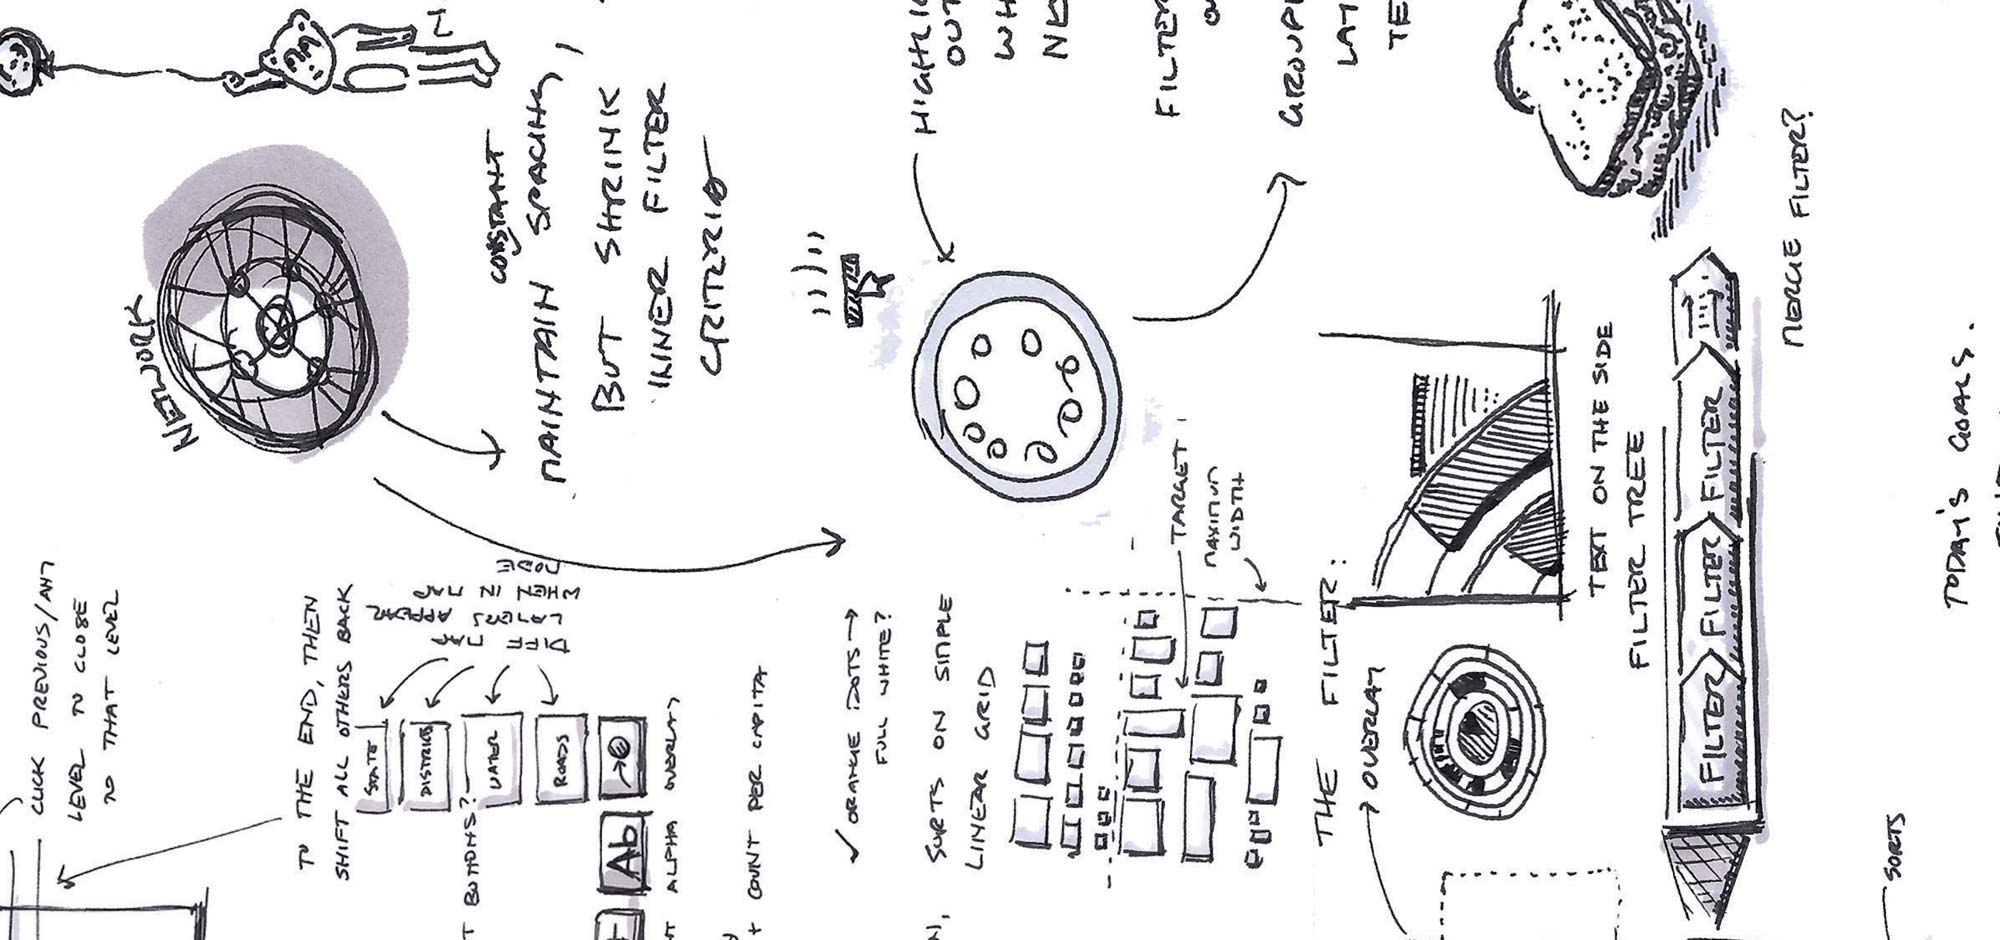 NETWORK
CONSTANT
MAINTAIN SPACING,
BUT SHRINK
INNER FILTER
CRITERIA
OUT
WH
FILTER
GROUPI
LAT
TE
MERGE FILTER?
CLICK PREVIOUS/ANY
LEVEL TO CLOSE
TO THAT LEVEL
TO THE END, THEN
SHIFT ALL OTHERS BACK
DIFF MAP
LAYERS APPEAR
WHEN IN MAP
MODE
STATE
DISTRICT
WATER
ROADS
T BUTTONS?
Ab
ALPHA OVERLAY
COUNT PER CAPITA
✓ ORANGE DOTS →
FULL WHITE?
SORTS ON SIMPLE
LINEAR GRID
TARGET
MAXIMUM
WIDTH
THE FILTER:
→ OVERLAY
TEXT ON THE SIDE
FILTER TREE
FILTER FILTER FILTER
TODAY'S GOALS.
SORTS